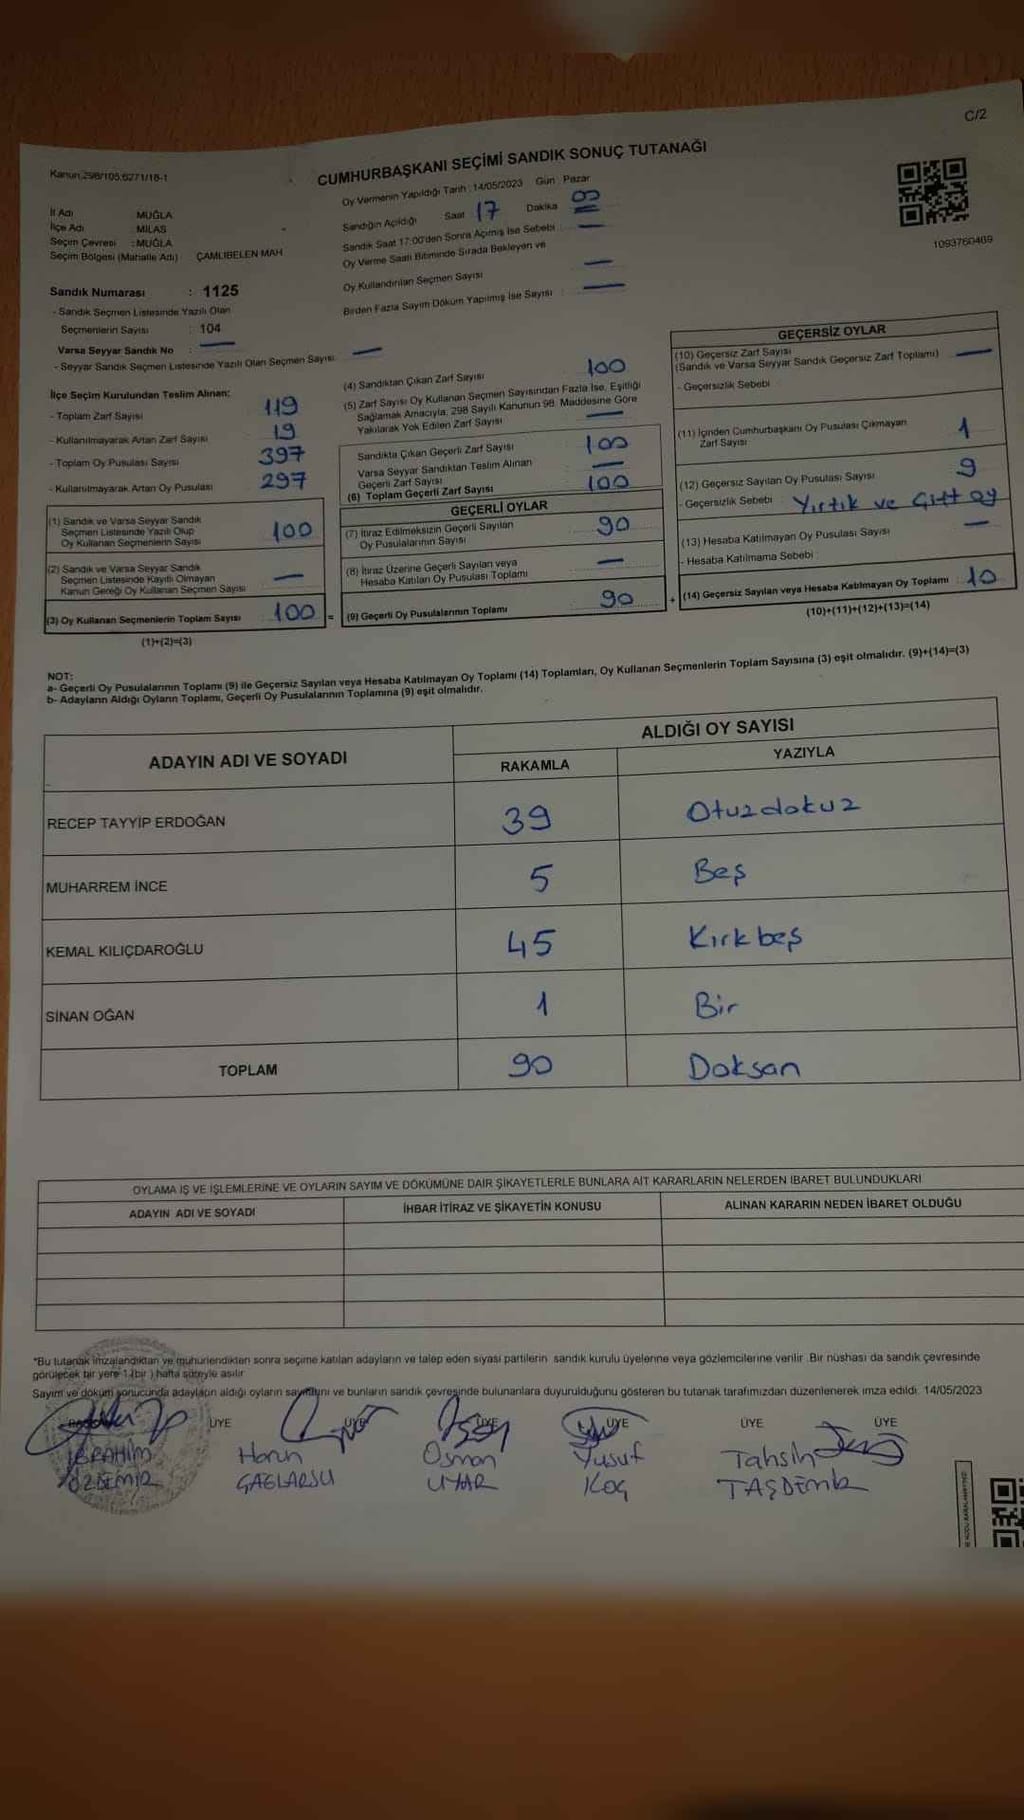 C/2
Kanun:298/105;6271/18-1
CUMHURBAŞKANI SEÇİMİ SANDIK SONUÇ TUTANAĞI
Oy Vermenin Yapıldığı Tarih : 14/05/2023 Gün : Pazar
İl Adı : MUĞLA
İlçe Adı : MİLAS
Seçim Çevresi : MUĞLA
Seçim Bölgesi (Mahalle Adı) : ÇAMLIBELEN MAH
Sandık Numarası : 1125
- Sandık Seçmen Listesinde Yazılı Olan
Seçmenlerin Sayısı : 104
Varsa Seyyar Sandık No : —
- Seyyar Sandık Seçmen Listesinde Yazılı Olan Seçmen Sayısı : —
Sandığın Açıldığı Saat 17 Dakika 00
Sandık Saat 17:00'den Sonra Açımış İse Sebebi : —
Oy Verme Saati Bitiminde Sırada Bekleyen ve
Oy Kullandırılan Seçmen Sayısı : —
Birden Fazla Sayım Döküm Yapılmış İse Sayısı : —
1093760469
İlçe Seçim Kurulundan Teslim Alınan:
- Toplam Zarf Sayısı : 119
- Kullanılmayarak Artan Zarf Sayısı : 19
- Toplam Oy Pusulası Sayısı : 397
- Kullanılmayarak Artan Oy Pusulası : 297
(1) Sandık ve Varsa Seyyar Sandık
Seçmen Listesinde Yazılı Olup
Oy Kullanan Seçmenlerin Sayısı 100
(2) Sandık ve Varsa Seyyar Sandık
Seçmen Listesinde Kayıtlı Olmayan
Kanun Gereği Oy Kullanan Seçmen Sayısı —
(3) Oy Kullanan Seçmenlerin Toplam Sayısı 100 =
(1)+(2)=(3)
(4) Sandıktan Çıkan Zarf Sayısı 100
(5) Zarf Sayısı Oy Kullanan Seçmen Sayısından Fazla İse, Eşitliği
Sağlamak Amacıyla, 298 Sayılı Kanunun 98. Maddesine Göre
Yakılarak Yok Edilen Zarf Sayısı —
Sandıkta Çıkan Geçerli Zarf Sayısı 100
Varsa Seyyar Sandıktan Teslim Alınan
Geçerli Zarf Sayısı —
(6) Toplam Geçerli Zarf Sayısı 100
GEÇERLİ OYLAR
(7) İtiraz Edilmeksizin Geçerli Sayılan
Oy Pusulalarının Sayısı 90
(8) İtiraz Üzerine Geçerli Sayılan veya
Hesaba Katılan Oy Pusulası Toplamı —
(9) Geçerli Oy Pusulalarının Toplamı 90 +
GEÇERSİZ OYLAR
(10) Geçersiz Zarf Sayısı
(Sandık ve Varsa Seyyar Sandık Geçersiz Zarf Toplamı) —
- Geçersizlik Sebebi :
(11) İçinden Cumhurbaşkanı Oy Pusulası Çıkmayan
Zarf Sayısı 1
(12) Geçersiz Sayılan Oy Pusulası Sayısı 9
- Geçersizlik Sebebi : Yırtık ve Çift oy
(13) Hesaba Katılmayan Oy Pusulası Sayısı —
- Hesaba Katılmama Sebebi :
(14) Geçersiz Sayılan veya Hesaba Katılmayan Oy Toplamı : 10
(10)+(11)+(12)+(13)=(14)
NOT:
a- Geçerli Oy Pusulalarının Toplamı (9) ile Geçersiz Sayılan veya Hesaba Katılmayan Oy Toplamı (14) Toplamları, Oy Kullanan Seçmenlerin Toplam Sayısına (3) eşit olmalıdır. (9)+(14)=(3)
b- Adayların Aldığı Oyların Toplamı, Geçerli Oy Pusulalarının Toplamına (9) eşit olmalıdır.
ADAYIN ADI VE SOYADI
ALDIĞI OY SAYISI
RAKAMLA YAZIYLA
RECEP TAYYİP ERDOĞAN 39 Otuzdokuz
MUHARREM İNCE 5 Beş
KEMAL KILIÇDAROĞLU 45 Kırkbeş
SİNAN OĞAN 1 Bir
TOPLAM 90 Doksan
OYLAMA İŞ VE İŞLEMLERİNE VE OYLARIN SAYIM VE DÖKÜMÜNE DAİR ŞİKAYETLERLE BUNLARA AİT KARARLARIN NELERDEN İBARET BULUNDUKLARI
ADAYIN ADI VE SOYADI İHBAR İTİRAZ VE ŞİKAYETİN KONUSU ALINAN KARARIN NEDEN İBARET OLDUĞU
*Bu tutanak imzalandıktan ve mühürlendikten sonra seçime katılan adayların ve talep eden siyasi partilerin sandık kurulu üyelerine veya gözlemcilerine verilir. Bir nüshası da sandık çevresinde
görülecek bir yere 1 (bir ) hafta süreyle asılır.
Sayım ve döküm sonucunda adayların aldığı oyların sayısını ve bunların sandık çevresinde bulunanlara duyurulduğunu gösteren bu tutanak tarafımızdan düzenlenerek imza edildi. 14/05/2023
ÜYE ÜYE ÜYE ÜYE ÜYE ÜYE
İBRAHİM Harun Osman Yusuf Tahsin
ÖZDEMİR ÇAĞLARSU UYAR KOÇ TAŞDEMİR